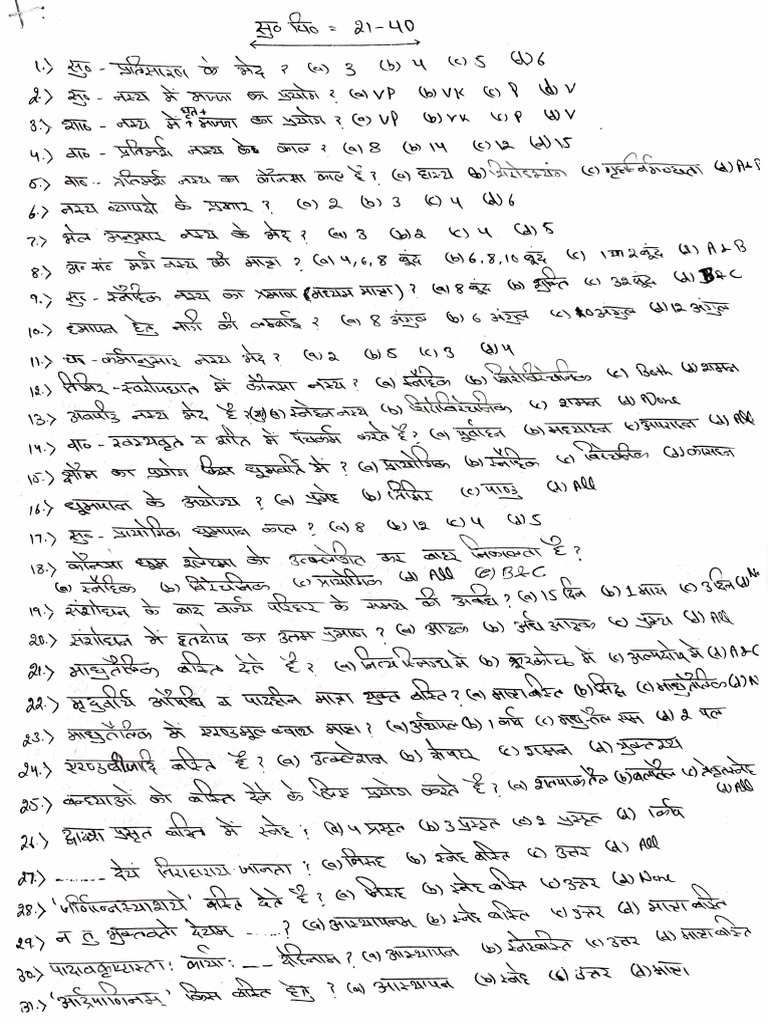 सु० चि० = 21-40
1.) सु० - प्रतिसारण के भेद ? (a) 3 (b) 4 (c) 5 (d) 6
2.) सु० - नस्य में मज्जा का प्रयोग ? (a) VP (b) VK (c) P (d) V
3.) शा० - नस्य में घृत + मज्जा का प्रयोग ? (a) VP (b) VK (c) P (d) V
4.) वा० - प्रतिमर्श नस्य के काल ? (a) 8 (b) 14 (c) 12 (d) 15
5.) वा० - प्रतिमर्श नस्य का कौनसा काल है ? (a) हास्य (b) शिरोऽभ्यंग (c) (d) A & B
6.) नस्य व्यापदो के प्रकार ? (a) 2 (b) 3 (c) 4 (d) 6
7.) भेल अनुसार नस्य के भेद ? (a) 3 (b) 2 (c) 4 (d) 5
8.) अ० सं० मर्श नस्य की मात्रा ? (a) 4, 6, 8 बूंद (b) 6, 8, 10 बूंद (c) 1 या 2 बूंद (d) A & B
9.) सु० - स्नैहिक नस्य का प्रमाण (मध्यम मात्रा) ? (a) 8 बूंद (b) शुक्ति (c) 32 बूंद (d) B & C
10.) ध्मापन हेतु नाड़ी की लम्बाई ? (a) 8 अंगुल (b) 6 अंगुल (c) 10 अंगुल (d) 12 अंगुल
11.) च० - कर्मानुसार नस्य भेद ? (a) 2 (b) 5 (c) 3 (d) 4
12.) तिमिर - स्वरोपघात में कौनसा नस्य ? (a) स्नैहिक (b) शिरोविरेचनिक (c) Both (d) शमन
13.) अवपीड़ नस्य भेद है ? (सु) (a) स्नेहन नस्य (b) शिरोविरेचनिक (c) शमन (d) None
14.) वा० - स्वस्थवृत व शीत में पंचकर्म करते है ? (a) पूर्वाह्न (b) मध्याह्न (c) अपराह्न (d) All
15.) क्षौम का प्रयोग किस धूमवर्ति में ? (a) प्रायोगिक (b) स्नैहिक (c) विरेचनिक (d) कासघ्न
16.) धूमपान के अयोग्य ? (a) प्रमेह (b) तिमिर (c) पाण्डु (d) All
17.) सु० - प्रायोगिक धूमपान काल ? (a) 8 (b) 12 (c) 4 (d) 5
18.) कौनसा धूम श्लेष्मा को उत्क्लेशित कर बाहर निकालता है ?
(a) स्नैहिक (b) विरेचनिक (c) प्रायोगिक (d) All (e) B & C
19.) संशोधन के बाद वर्ज्य परिहार के समय की अवधि ? (a) 15 दिन (b) 1 मास (c) 3 दिन (d) N
20.) संशोधन में हृतदोष का उत्तम प्रमाण ? (a) आढक (b) अर्ध आढक (c) प्रस्थ (d) All
21.) माधुतैलिक बस्ति देते है ? (a) नित्य स्निग्ध में (b) क्रूरकोष्ठ में (c) अल्पदोष में (d) A & C
22.) मृदुवीर्य औषधि व पादहीन मात्रा युक्त बस्ति ? (a) मात्रा बस्ति (b) सिद्ध (c) माधुतैलिक (d) N
23.) माधुतैलिक में एरण्डमूल क्वाथ मात्रा ? (a) अर्धपल (b) 1 कर्ष (c) मधु-तैल सम (d) 2 पल
24.) एरण्डबीजादि बस्ति है ? (a) उत्क्लेशन (b) दोषहर (c) शमन (d) युक्तरथ
25.) वन्ध्याओं को बस्ति देने के लिए प्रयोग करते है ? (a) शतपाक तैल (b) बलातैल (c) त्रैवृत स्नेह (d) All
26.) द्वादश प्रसृत बस्ति में स्नेह ? (a) 4 प्रसृत (b) 3 प्रसृत (c) 2 प्रसृत (d) 1 कर्ष
27.) ........ देयं निराहाराय जानता ? (a) निरूह (b) स्नेह बस्ति (c) उत्तर (d) All
28.) 'जीर्णान्नस्याशये' बस्ति देते है ? (a) निरूह (b) स्नेह बस्ति (c) उत्तर (d) None
29.) न तु भुक्तवतो देयम ......? (a) आस्थापनम् (b) स्नेह बस्ति (c) उत्तर (d) मात्रा बस्ति
30.) पादावकृष्टास्ता: कार्या: __ देहिनाम ? (a) आस्थापन (b) स्नेहबस्ति (c) उत्तर (d) मात्रा बस्ति
31.) 'आर्द्रपाणिनम्' किस बस्ति हेतु ? (a) आस्थापन (b) स्नेह (c) उत्तर (d) मात्रा